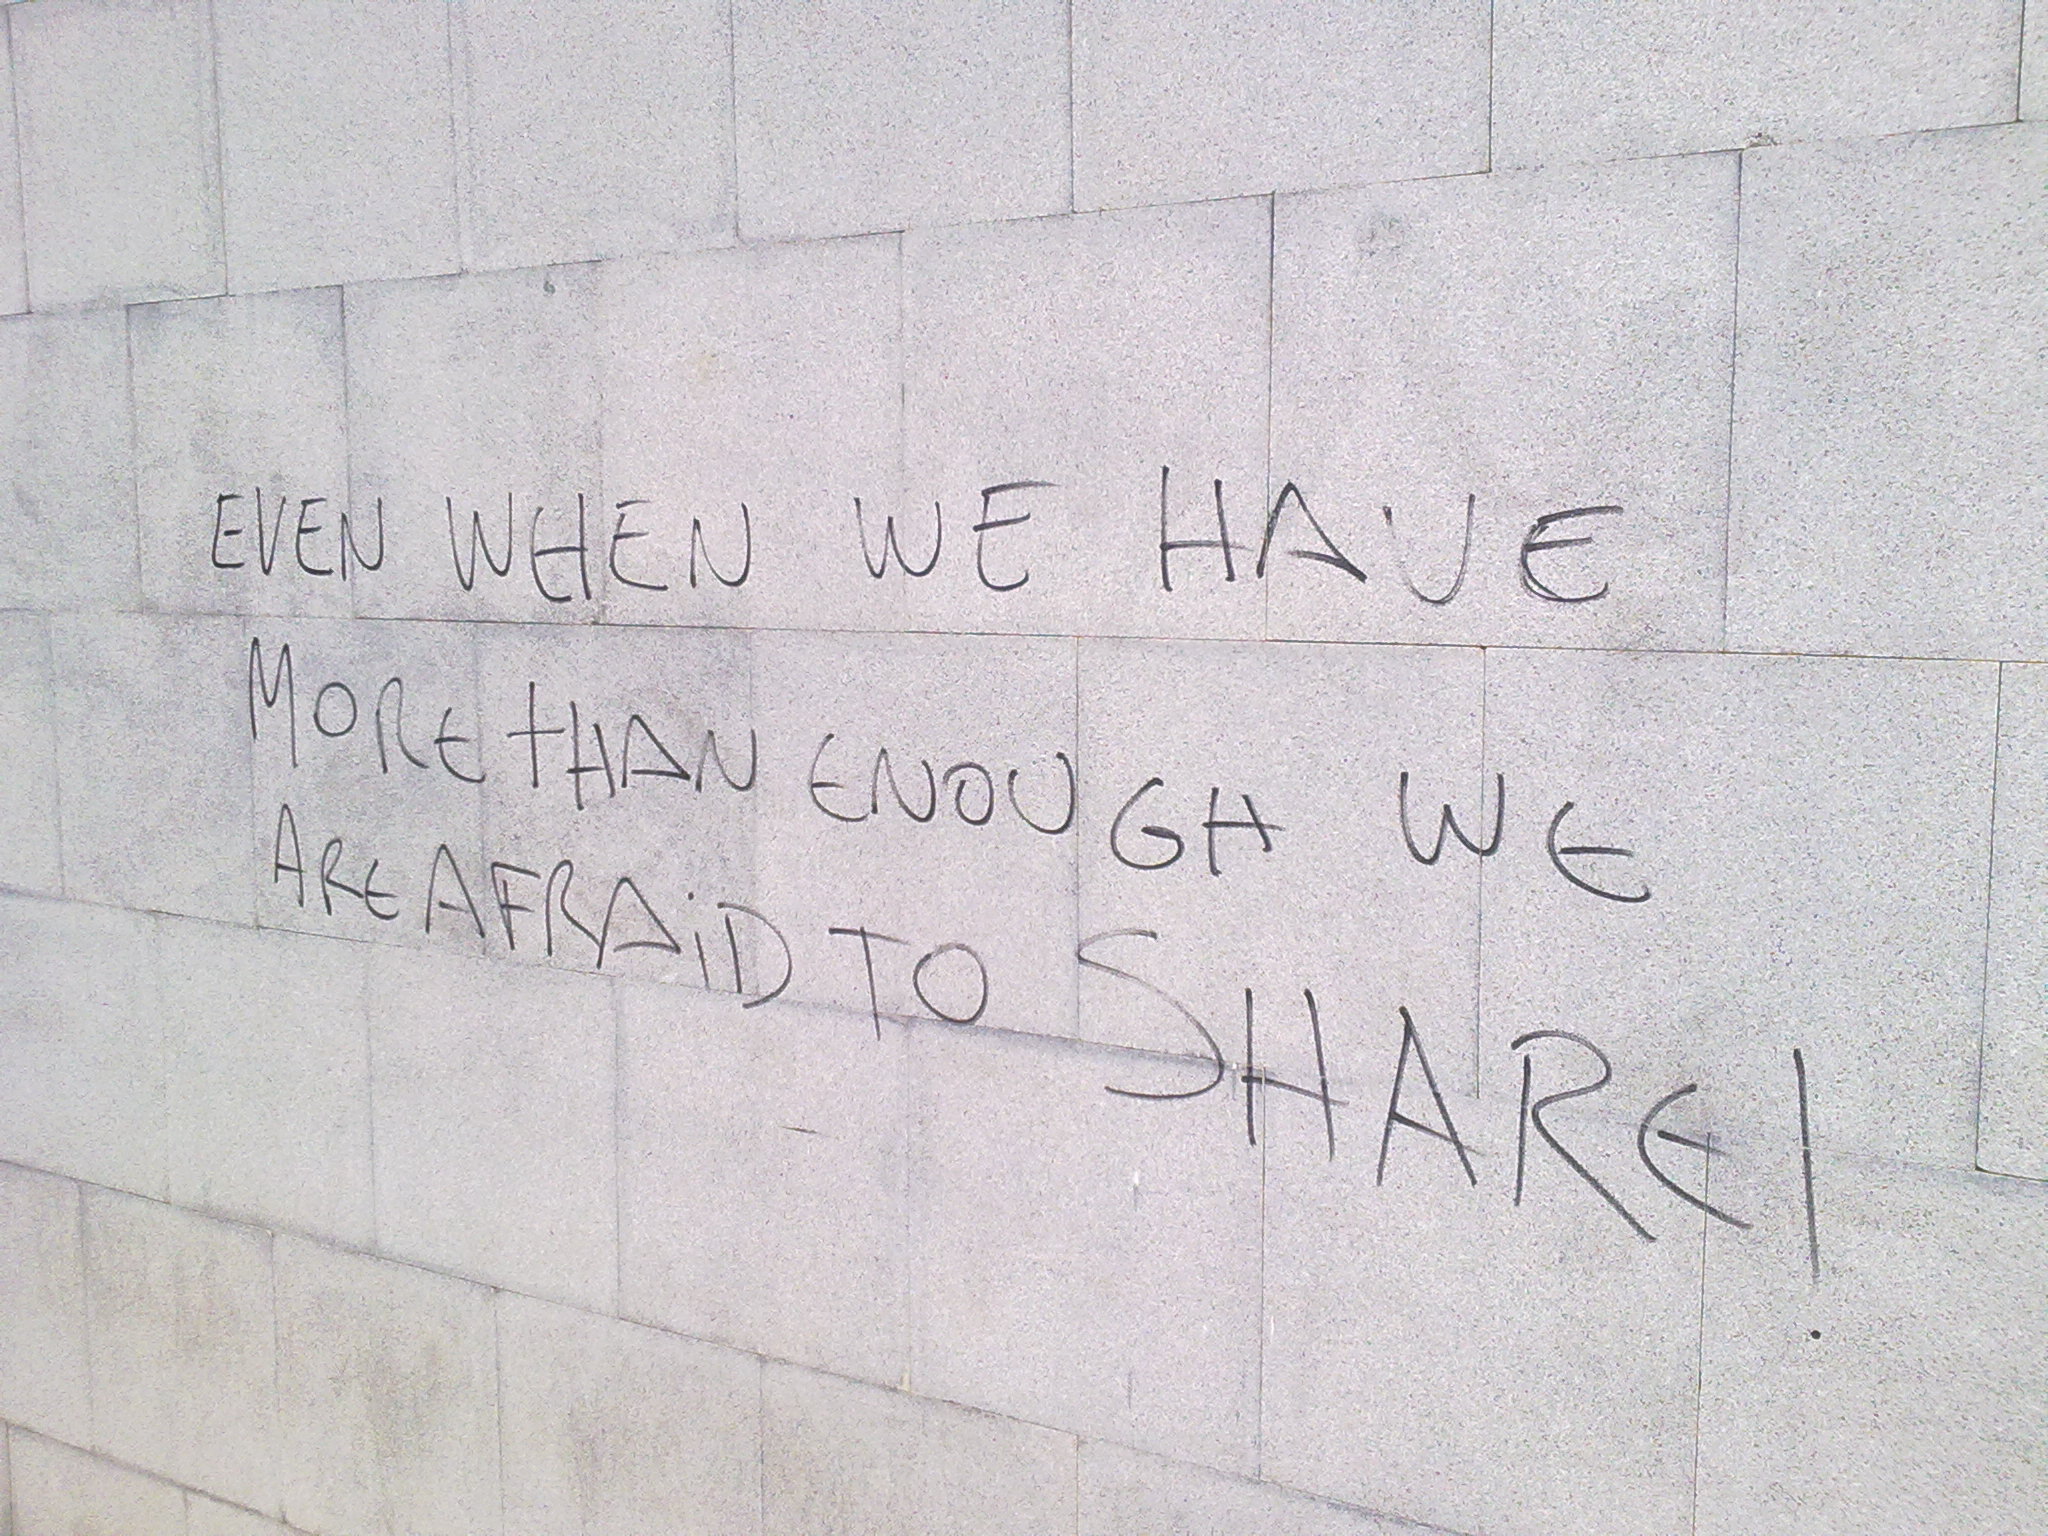 EVEN WHEN WE HAVE
MORE THAN ENOUGH WE
ARE AFRAiD TO SHARE!